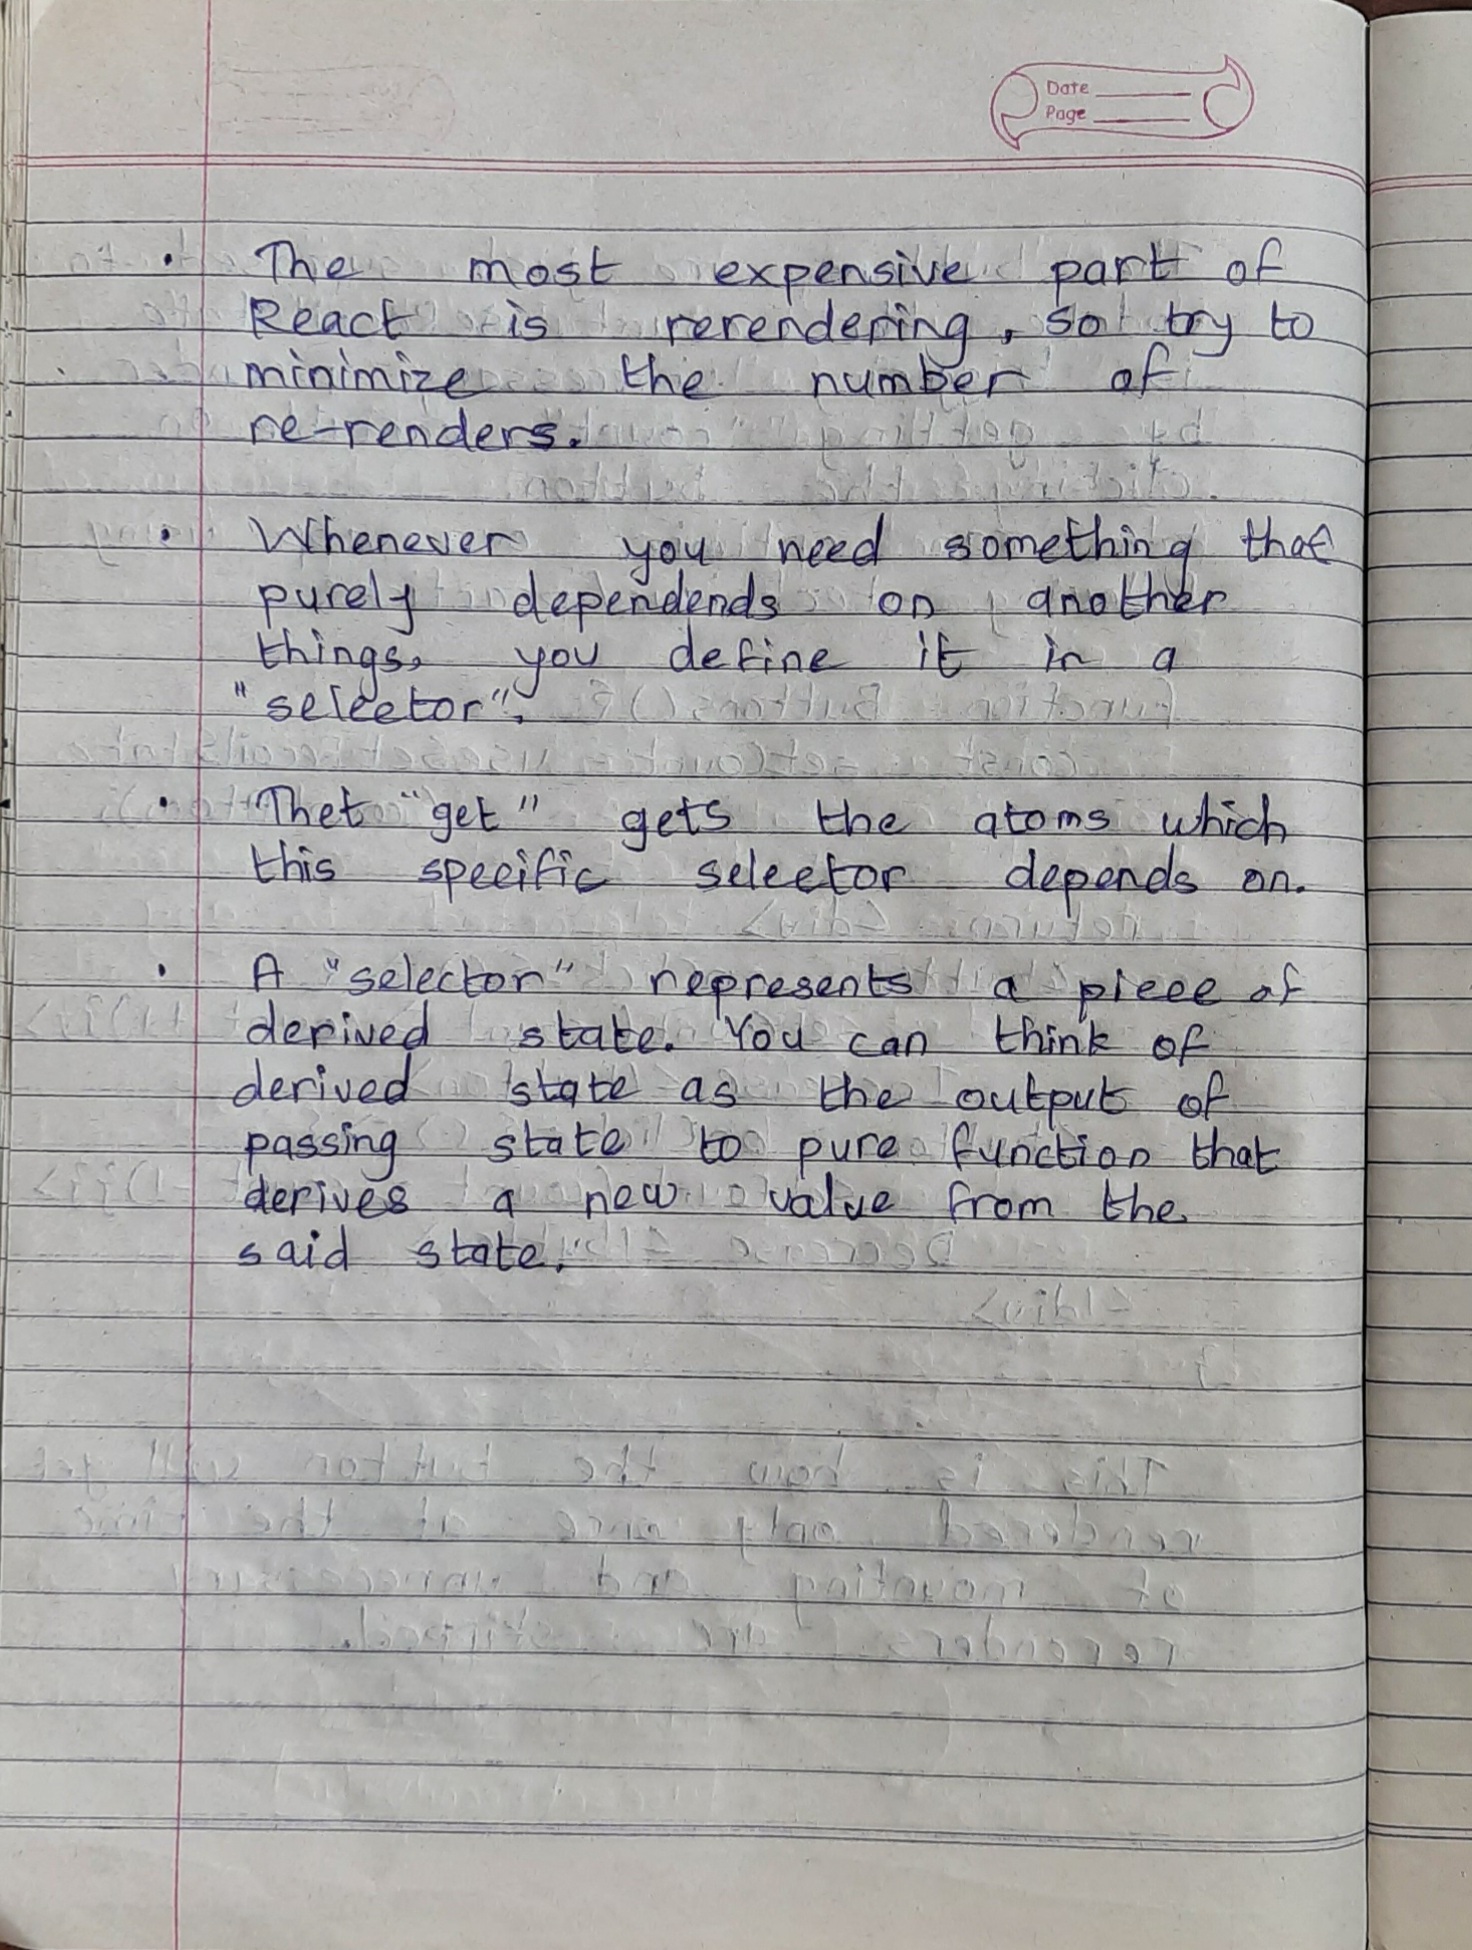 Date
Page
• The most expensive part of
React is rerendering, so try to
minimize the number of
re-renders.
• Whenever you need something that
purely dependends on another
things, you define it in a
"selector".
• Thet "get" gets the atoms which
this specific selector depends on.
• A "selector" represents a piece of
derived state. You can think of
derived state as the output of
passing state to pure function that
derives a new value from the
said state.